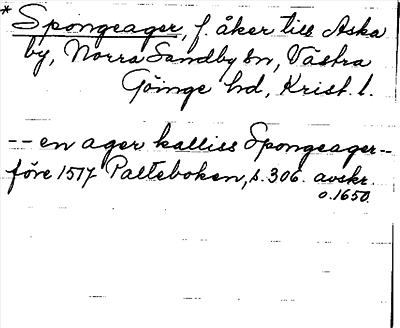 * Spongeager, f. åker till Aska
by, Norra Sandby sn, Västra
Göinge hd, Krist. l.
-- en ager kalliss Spongeager --
före 1517 Palteboken, s. 306. avskr.
o. 1650.